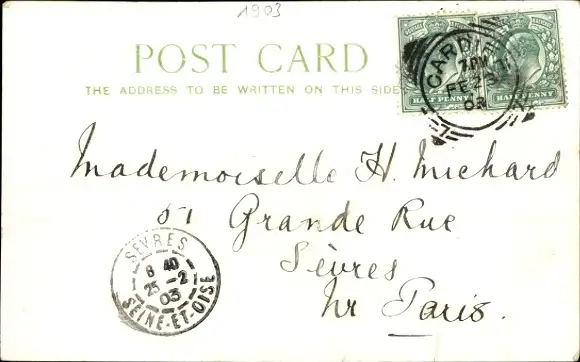 1903
POST CARD
THE ADDRESS TO BE WRITTEN ON THIS SIDE
HALF PENNY HALF PENNY
CARDIFF
7 PM
FE 23
03
Mademoiselle H. Michard
51 Grande Rue
Sèvres
Nr Paris.
SÈVRES
8 40
25 -2
03
SEINE-ET-OISE